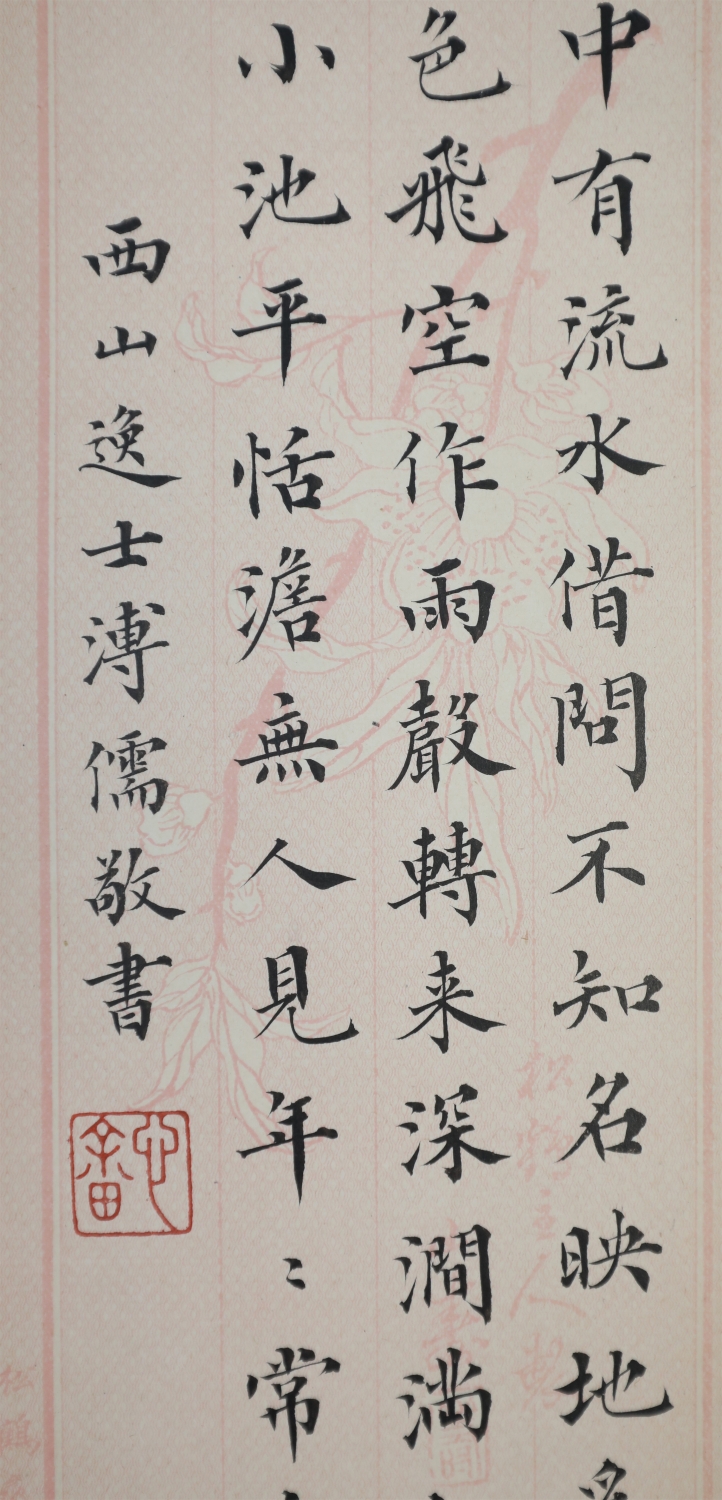 中有流水借問不知名映地
色飛空作雨聲轉来深澗満
小池平恬澹無人見年〻常
西山逸士溥儒敬書
松鶴